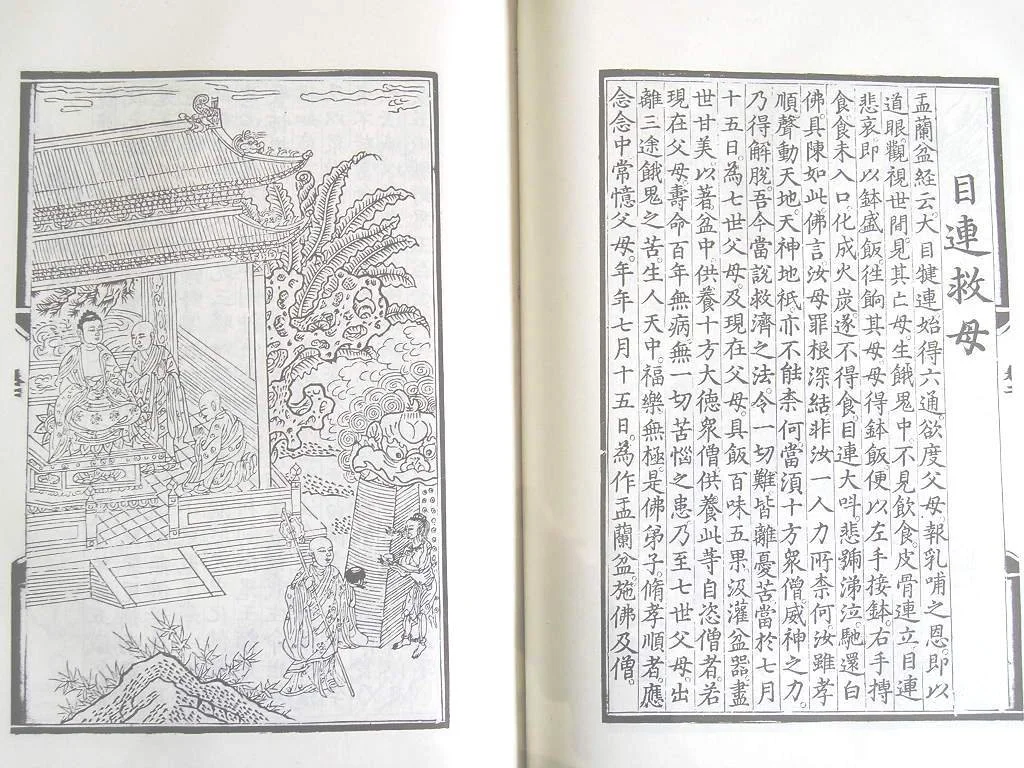 目連救母
盂蘭盆經云。大目犍連始得六通。欲度父母。報乳哺之恩。即以
道眼。觀視世間。見其亡母。生餓鬼中。不見飲食。皮骨連立。目連
悲哀。即以鉢盛飯。徃餉其母。母得鉢飯。便以左手接鉢。右手摶
食。食未入口。化成火炭。遂不得食。目連大呌。悲號涕泣。馳還白
佛。具陳如此。佛言。汝母罪根深結。非汝一人力所柰何。汝雖孝
順。聲動天地。天神地祇。亦不能柰何。當湏十方眾僧威神之力。
乃得解脫。吾今當說救濟之法。令一切難。皆離憂苦。當於七月
十五日。為七世父母。及現在父母。具飯百味五果。汲灌盆器。盡
世甘美。以著盆中。供養十方大德眾僧。供養此等自恣僧者。若
現在父母。壽命百年無病。無一切苦惱之患。乃至七世父母。出
離三途餓鬼之苦。生人天中。福樂無極。是佛弟子。脩孝順者。應
念念中。常憶父母。年年七月十五日。為作盂蘭盆。施佛及僧。